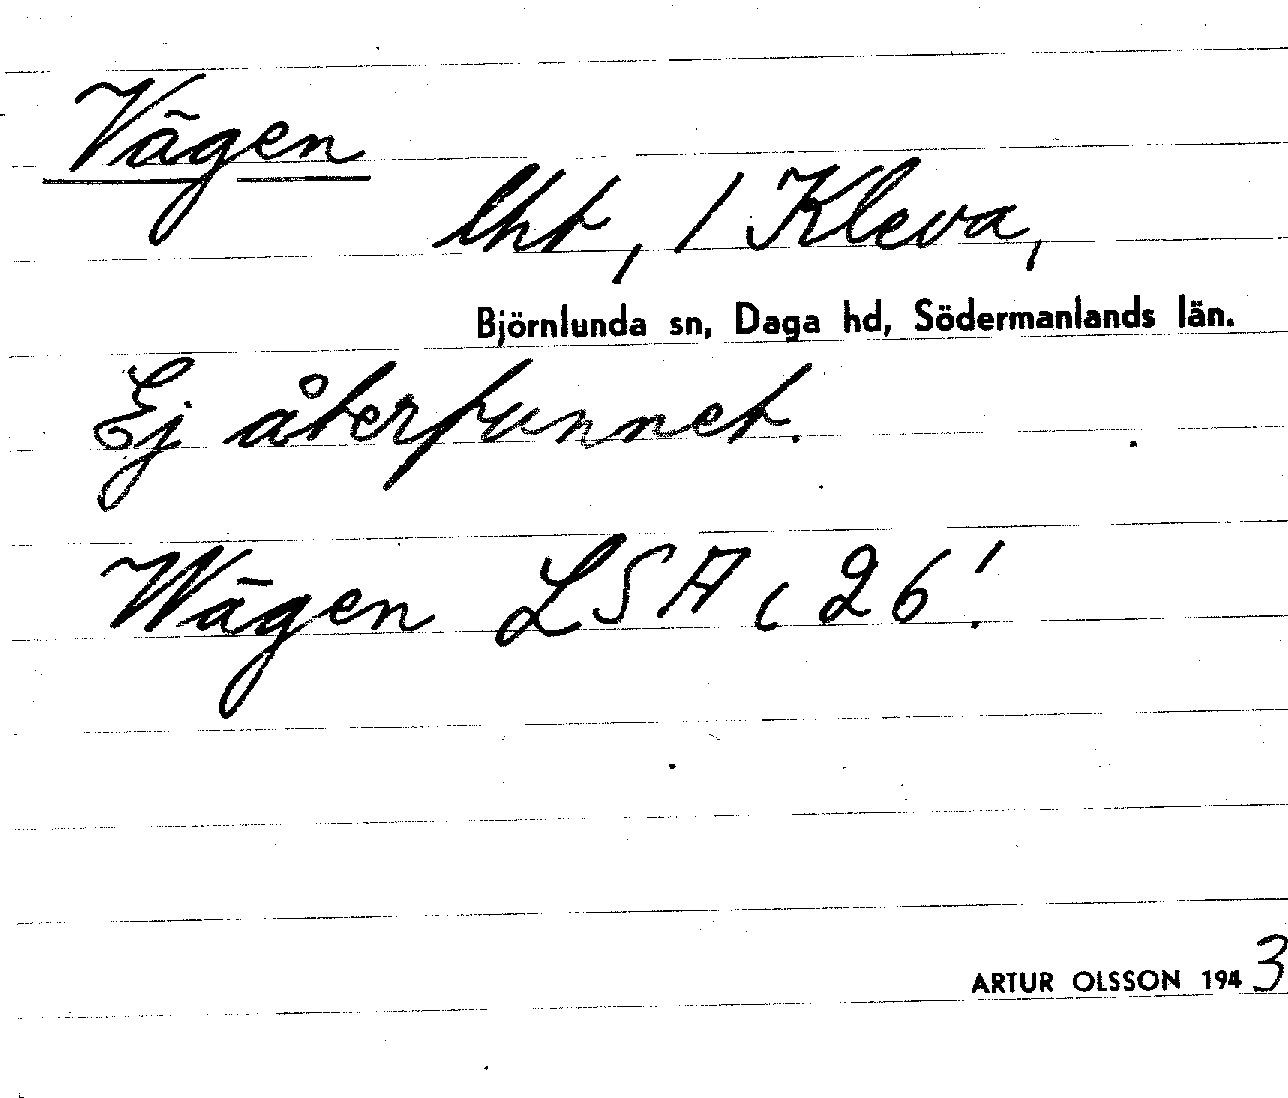 Vägen
lht, / Kleva,
Björnlunda sn, Daga hd, Södermanlands län.
Ej återfunnet.
Wägen LSA c 26!
ARTUR OLSSON 1943